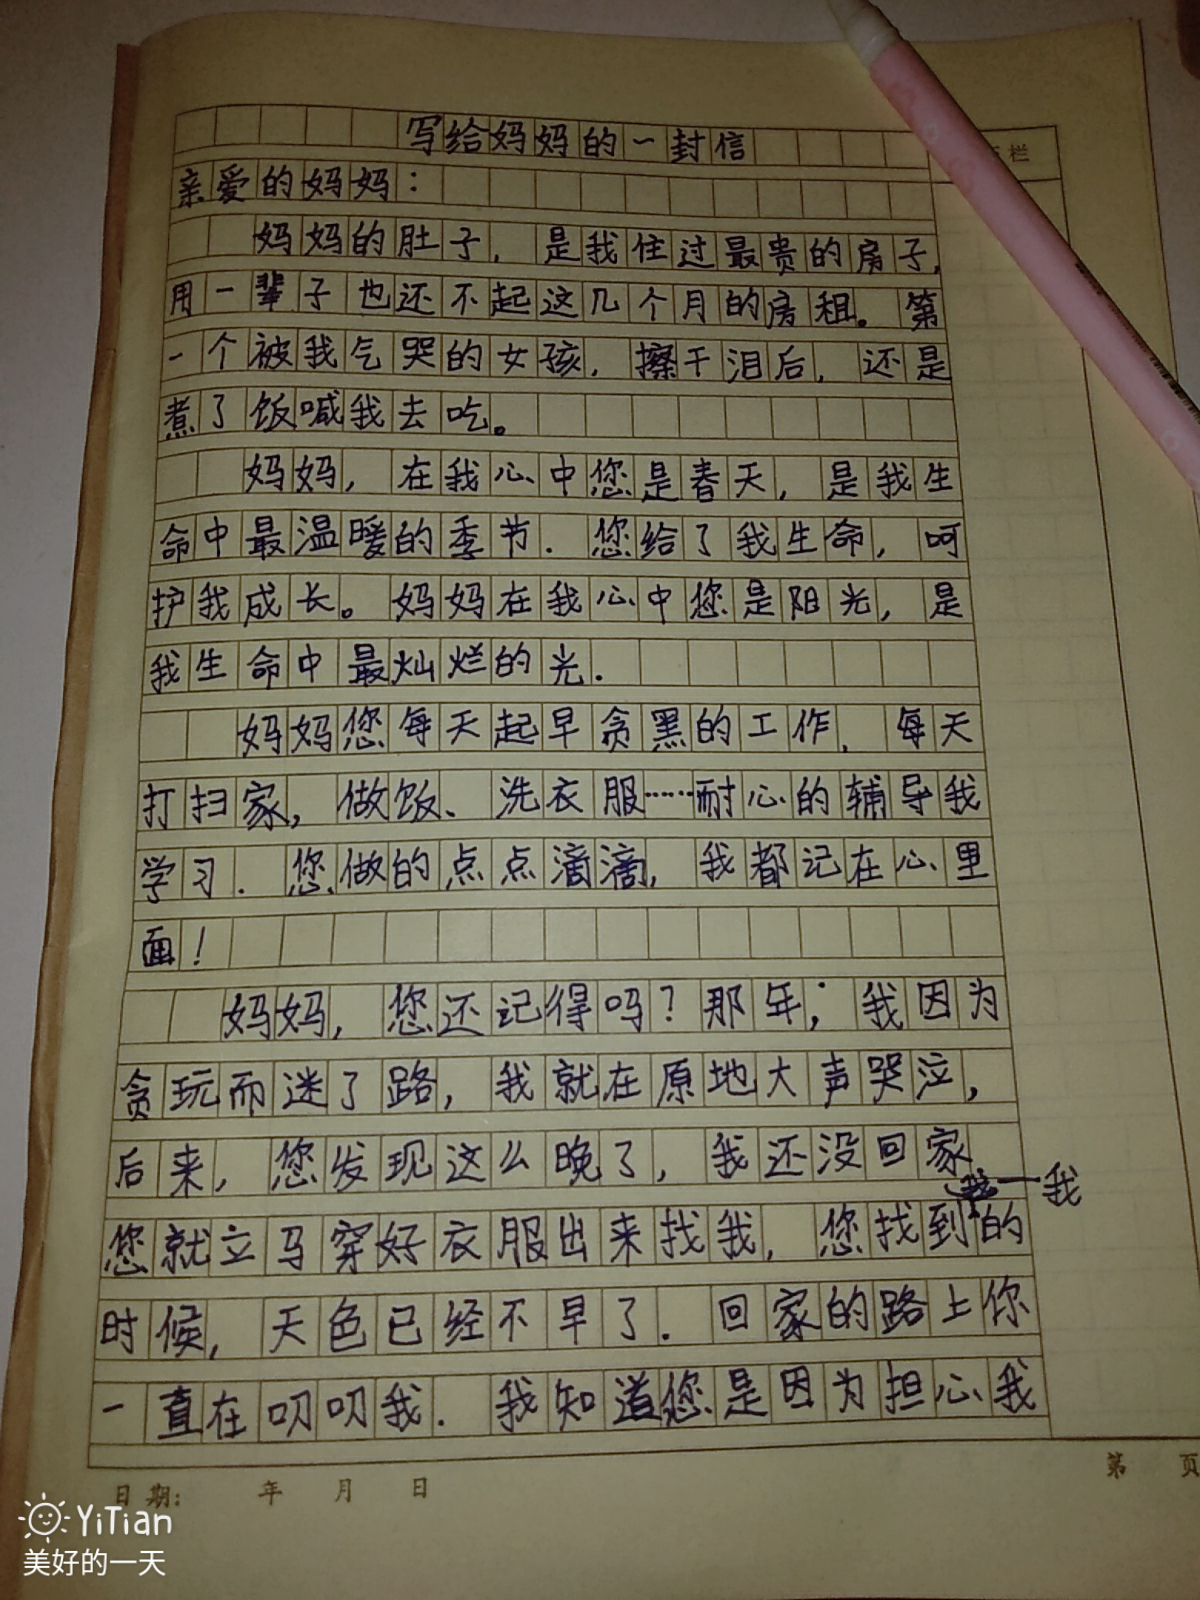 写给妈妈的一封信
栏
亲爱的妈妈:
妈妈的肚子,是我住过最贵的房子,
用一辈子也还不起这几个月的房租。第
一个被我气哭的女孩,擦干泪后,还是
煮了饭喊我去吃。
妈妈,在我心中您是春天,是我生
命中最温暖的季节.您给了我生命,呵
护我成长。妈妈在我心中您是阳光,是
我生命中最灿烂的光.
妈妈您每天起早贪黑的工作,每天
打扫家,做饭、洗衣服……耐心的辅导我
学习.您做的点点滴滴,我都记在心里
面!
妈妈,您还记得吗?那年;我因为
贪玩而迷了路,我就在原地大声哭泣,
后来,您发现这么晚了,我还没回家
我
您就立马穿好衣服出来找我,您找到的
时候,天色已经不早了.回家的路上你
一直在叨叨我.我知道您是因为担心我
日期: 年 月 日
第 页
YiTian
美好的一天